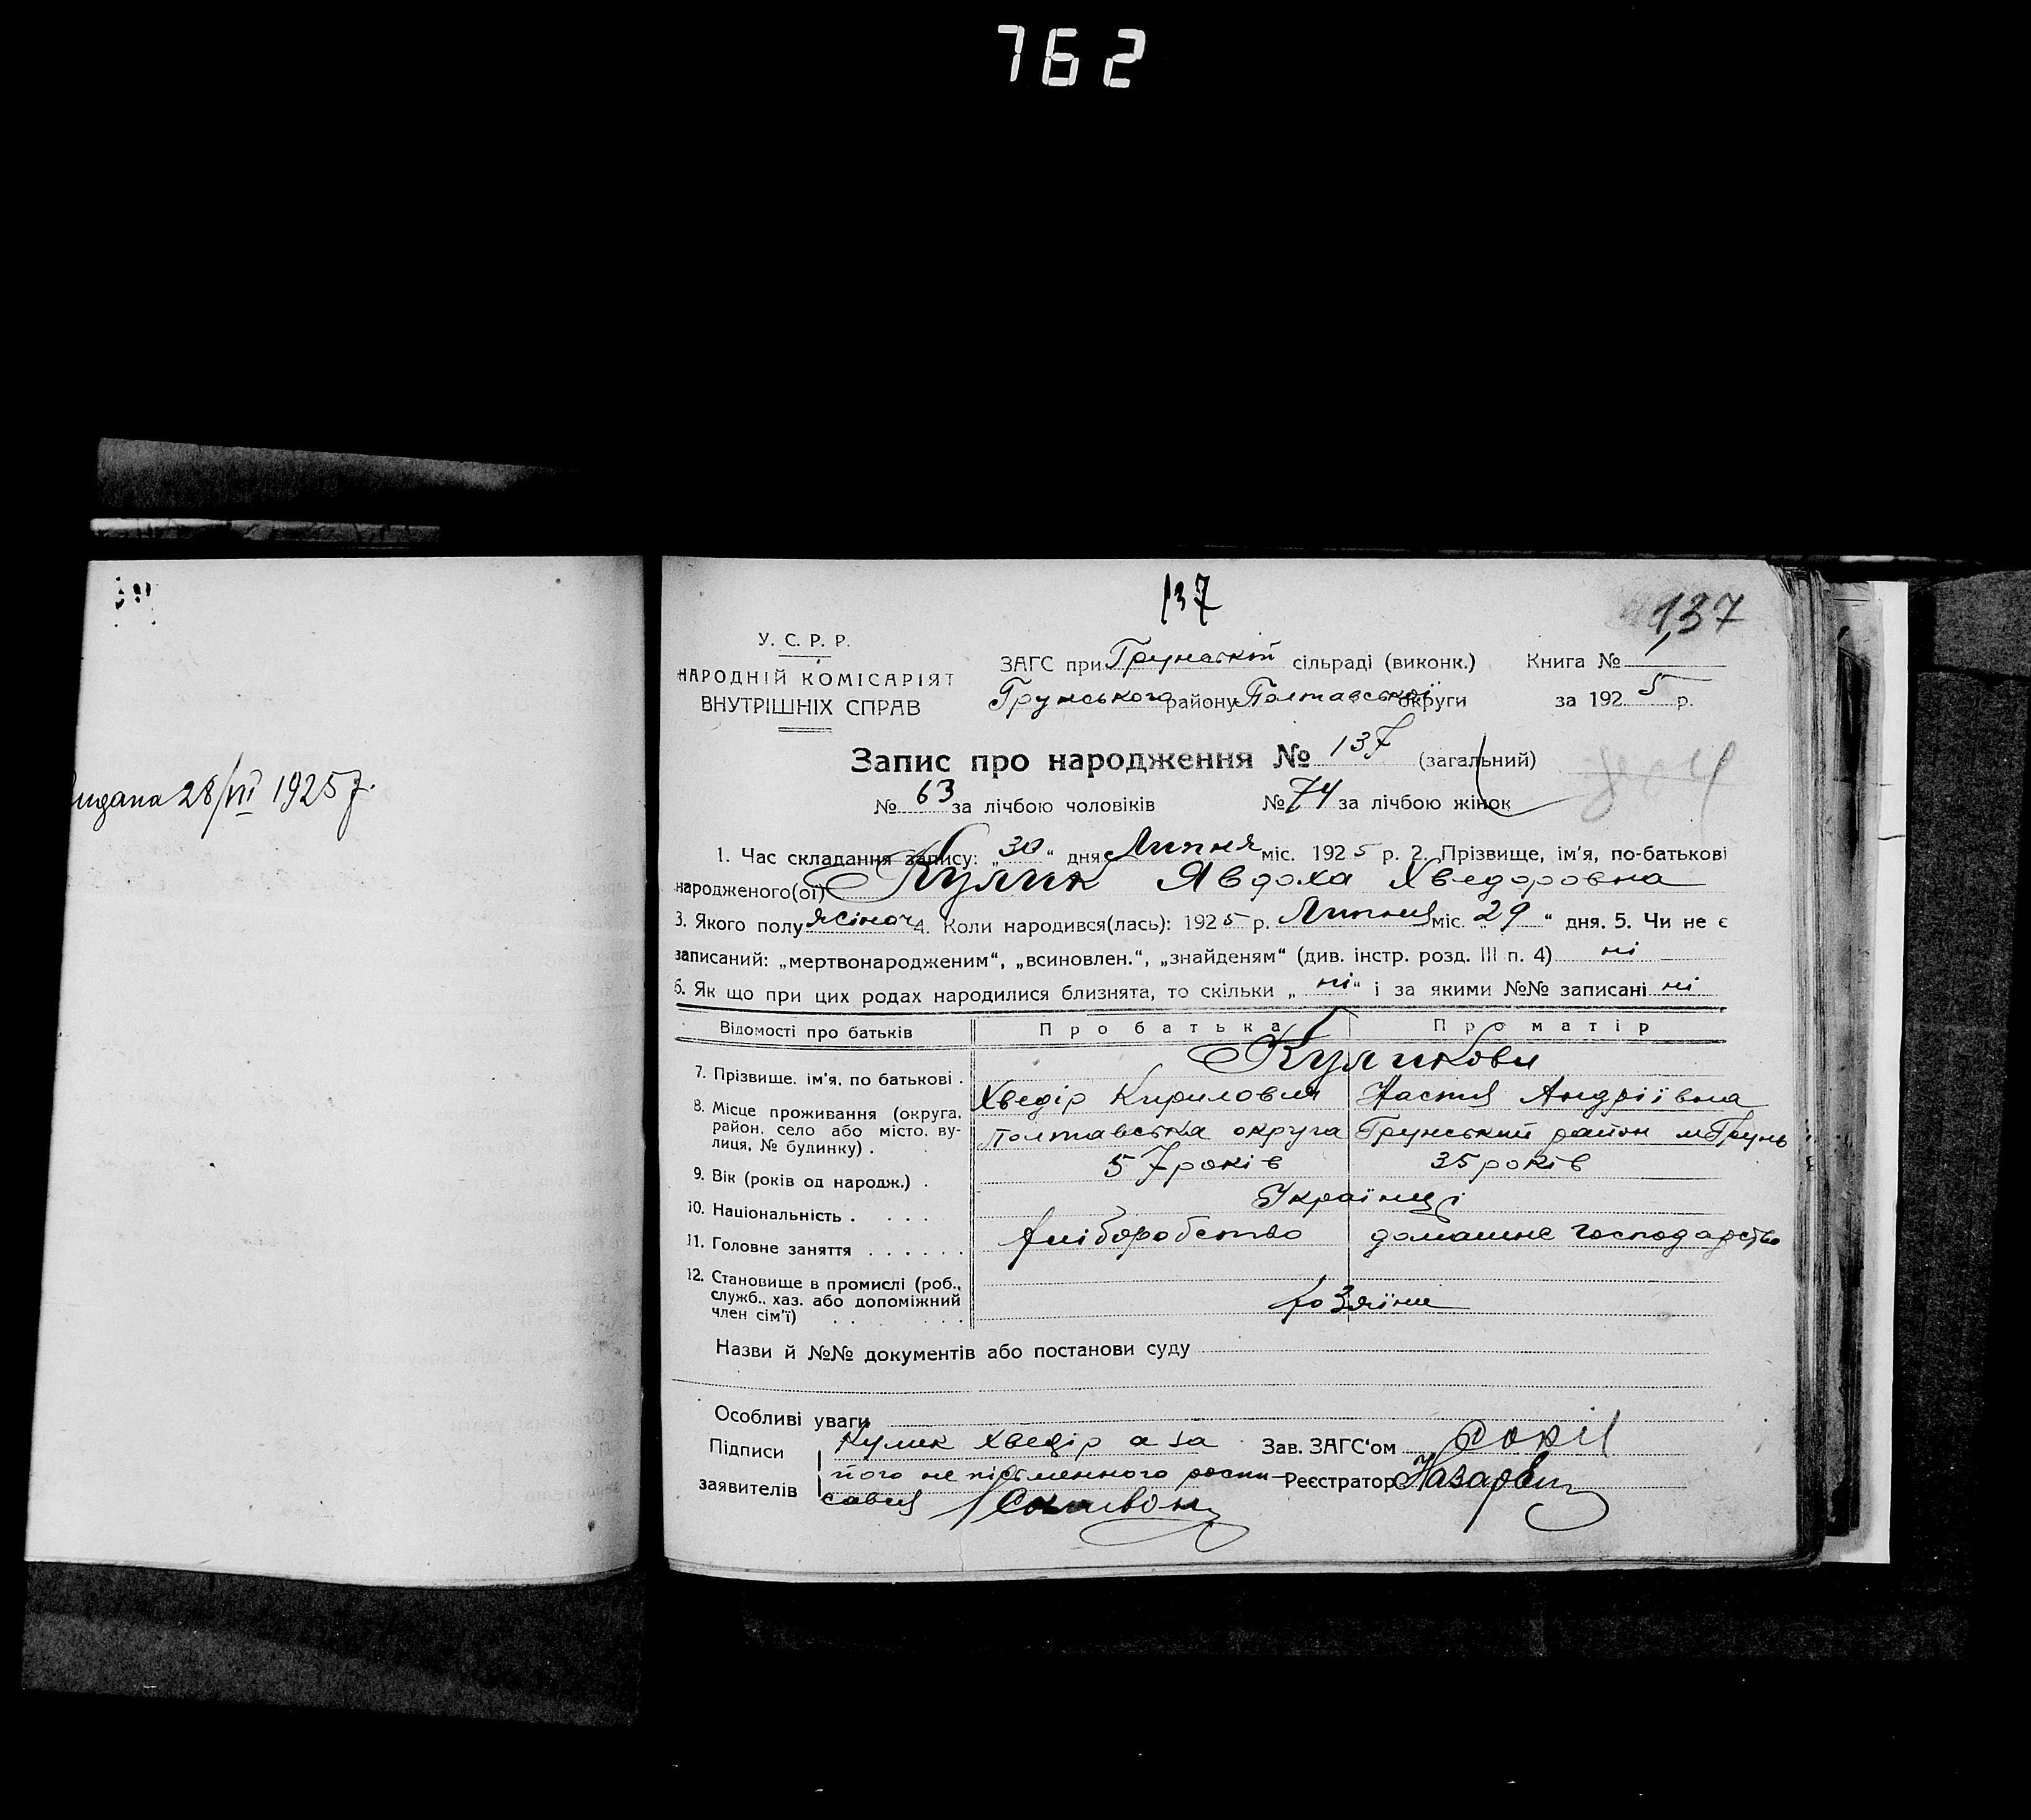 762
28/VII 1925 р.
137
137
У. С. Р. Р.
НАРОДНІЙ КОМІСАРІЯТ
ВНУТРІШНІХ СПРАВ
ЗАГС при Грунській сільраді (виконк.) Книга №
Грунського району Полтавської округи за 1925 р.
Запис про народження № 137 (загальний)
№ 63 за лічбою чоловіків № 74 за лічбою жінок
1. Час складання запису: „30“ дня Липня міс. 1925 р. 2. Прізвище, ім'я, по-батькові
народженого(ої) Кулик Явдоха Хведоровна
3. Якого полу жіноч 4. Коли народився(лась): 1925 р. Липня міс. 29“ дня. 5. Чи не є
записаний: „мертвонародженим“, „всиновлен.“, „знайденям“ (див. інстр. розд. III п. 4) ні
6. Як що при цих родах народилися близнята, то скільки „ні“ і за якими №№ записані ні
Відомості про батьків Про батька Про матір
Куликови
7. Прізвище, ім'я, по батькові . Хведір Кирилович Настя Андріївна
8. Місце проживання (округа,
район, село або місто, ву-
лиця, № будинку) . Полтавська округа Грунський район м Грунь
9. Вік (років од народж.) . 57 років 35 років
10. Національність . . . . Українці
11. Головне заняття . . . . . . хліборобство домашне господарство
12. Становище в промислі (роб.,
служб., хаз. або допоміжний
член сім'ї) . . . . . . . . хозяїни
Назви й №№ документів або постанови суду
Особливі уваги
Підписи Кулик Хведір а за Зав. ЗАГС'ом
заявителів його не письменного роспи- Реєстратор Назарвич
савсь